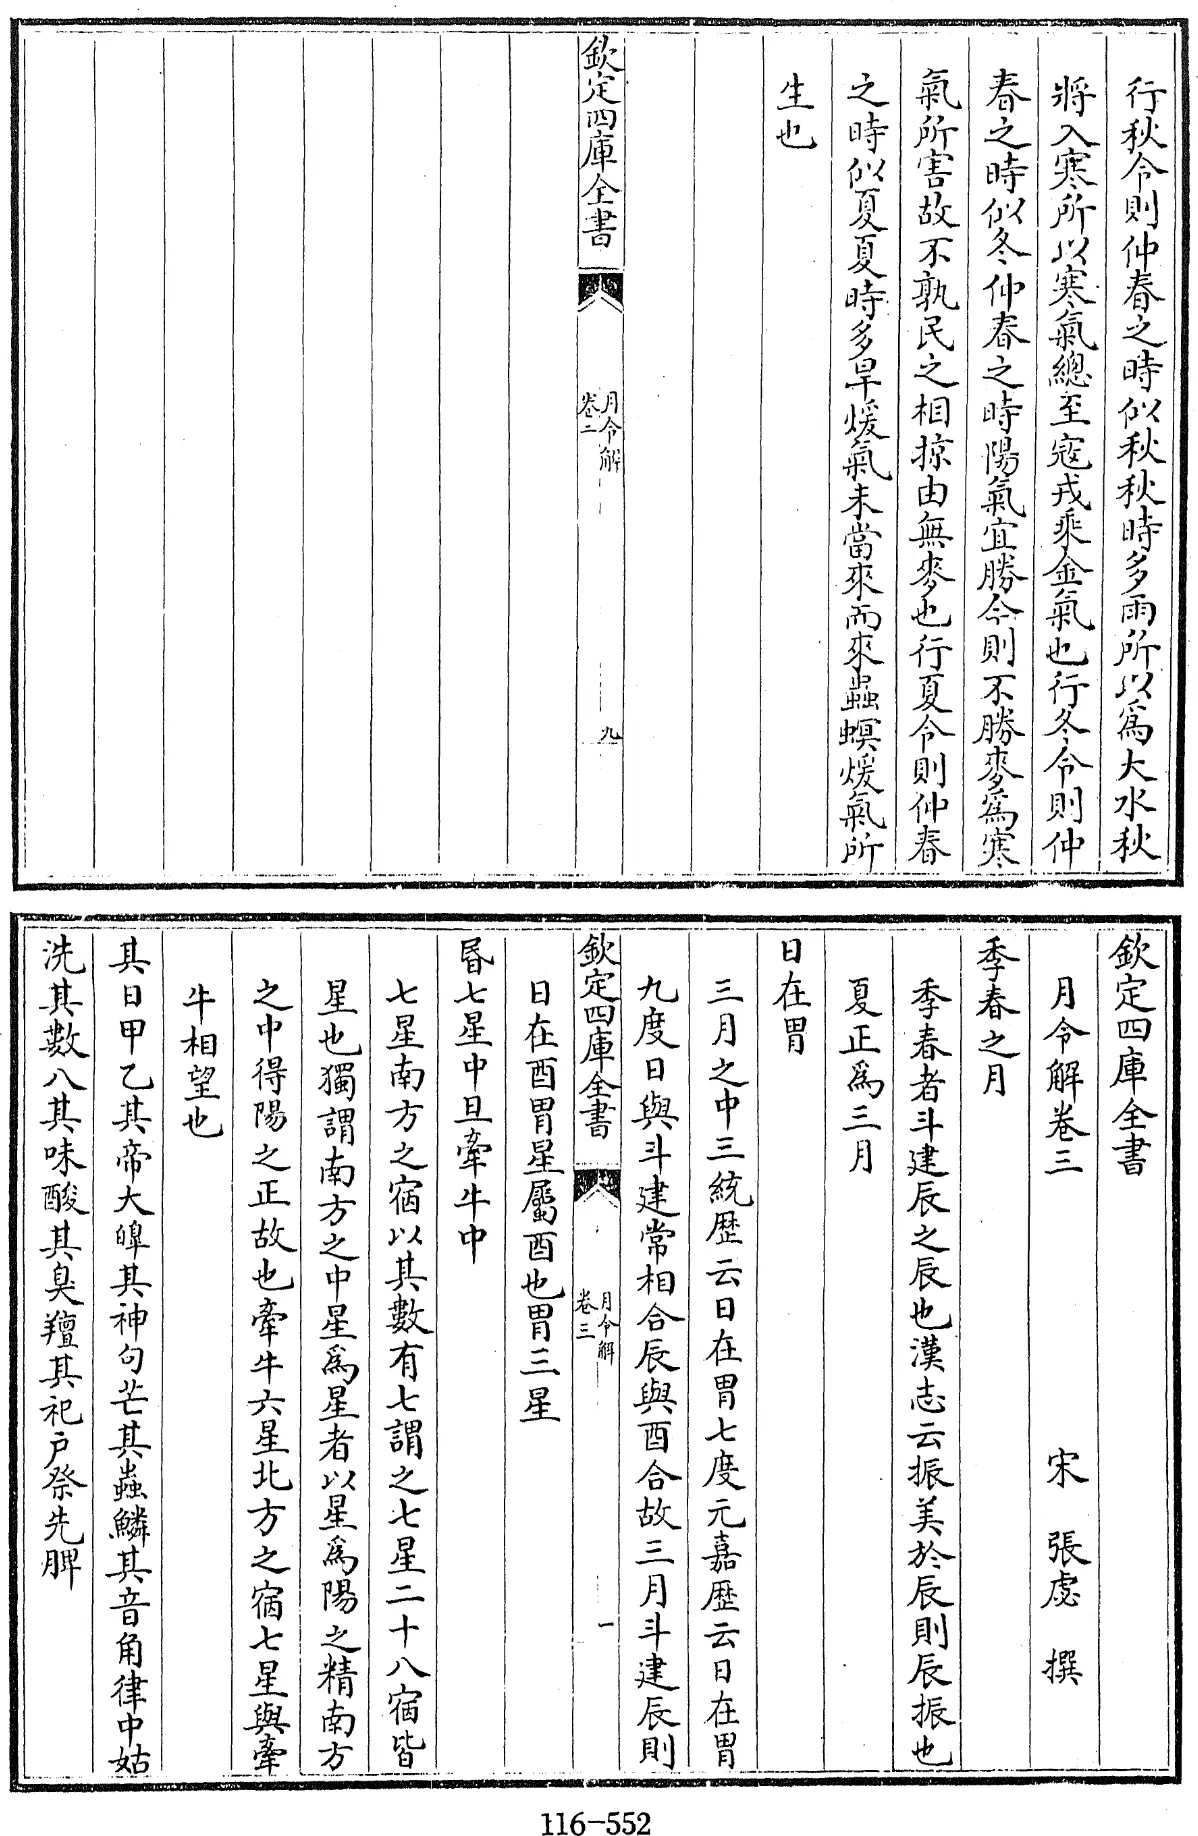 行秋令則仲春之時似秋秋時多雨所以爲大水秋
將入寒所以寒氣總至寇戎乘金氣也行冬令則仲
春之時似冬仲春之時陽氣宜勝今則不勝麥爲寒
氣所害故不孰民之相掠由無麥也行夏令則仲春
之時似夏夏時多旱煖氣未當來而來蟲螟煖氣所
生也
欽定四庫全書
月令解
卷二
九
欽定四庫全書
月令解卷三
宋 張虙 撰
季春之月
季春者斗建辰之辰也漢志云振美於辰則辰振也
夏正爲三月
日在胃
三月之中三統歷云日在胃七度元嘉歷云日在胃
九度日與斗建常相合辰與酉合故三月斗建辰則
欽定四庫全書
月令解
卷三
一
日在酉胃星屬酉也胃三星
昏七星中旦牽牛中
七星南方之宿以其數有七謂之七星二十八宿皆
星也獨謂南方之中星爲星者以星爲陽之精南方
之中得陽之正故也牽牛六星北方之宿七星與牽
牛相望也
其日甲乙其帝大皥其神句芒其蟲鱗其音角律中姑
洗其數八其味酸其臭羶其祀户祭先脾
116-552